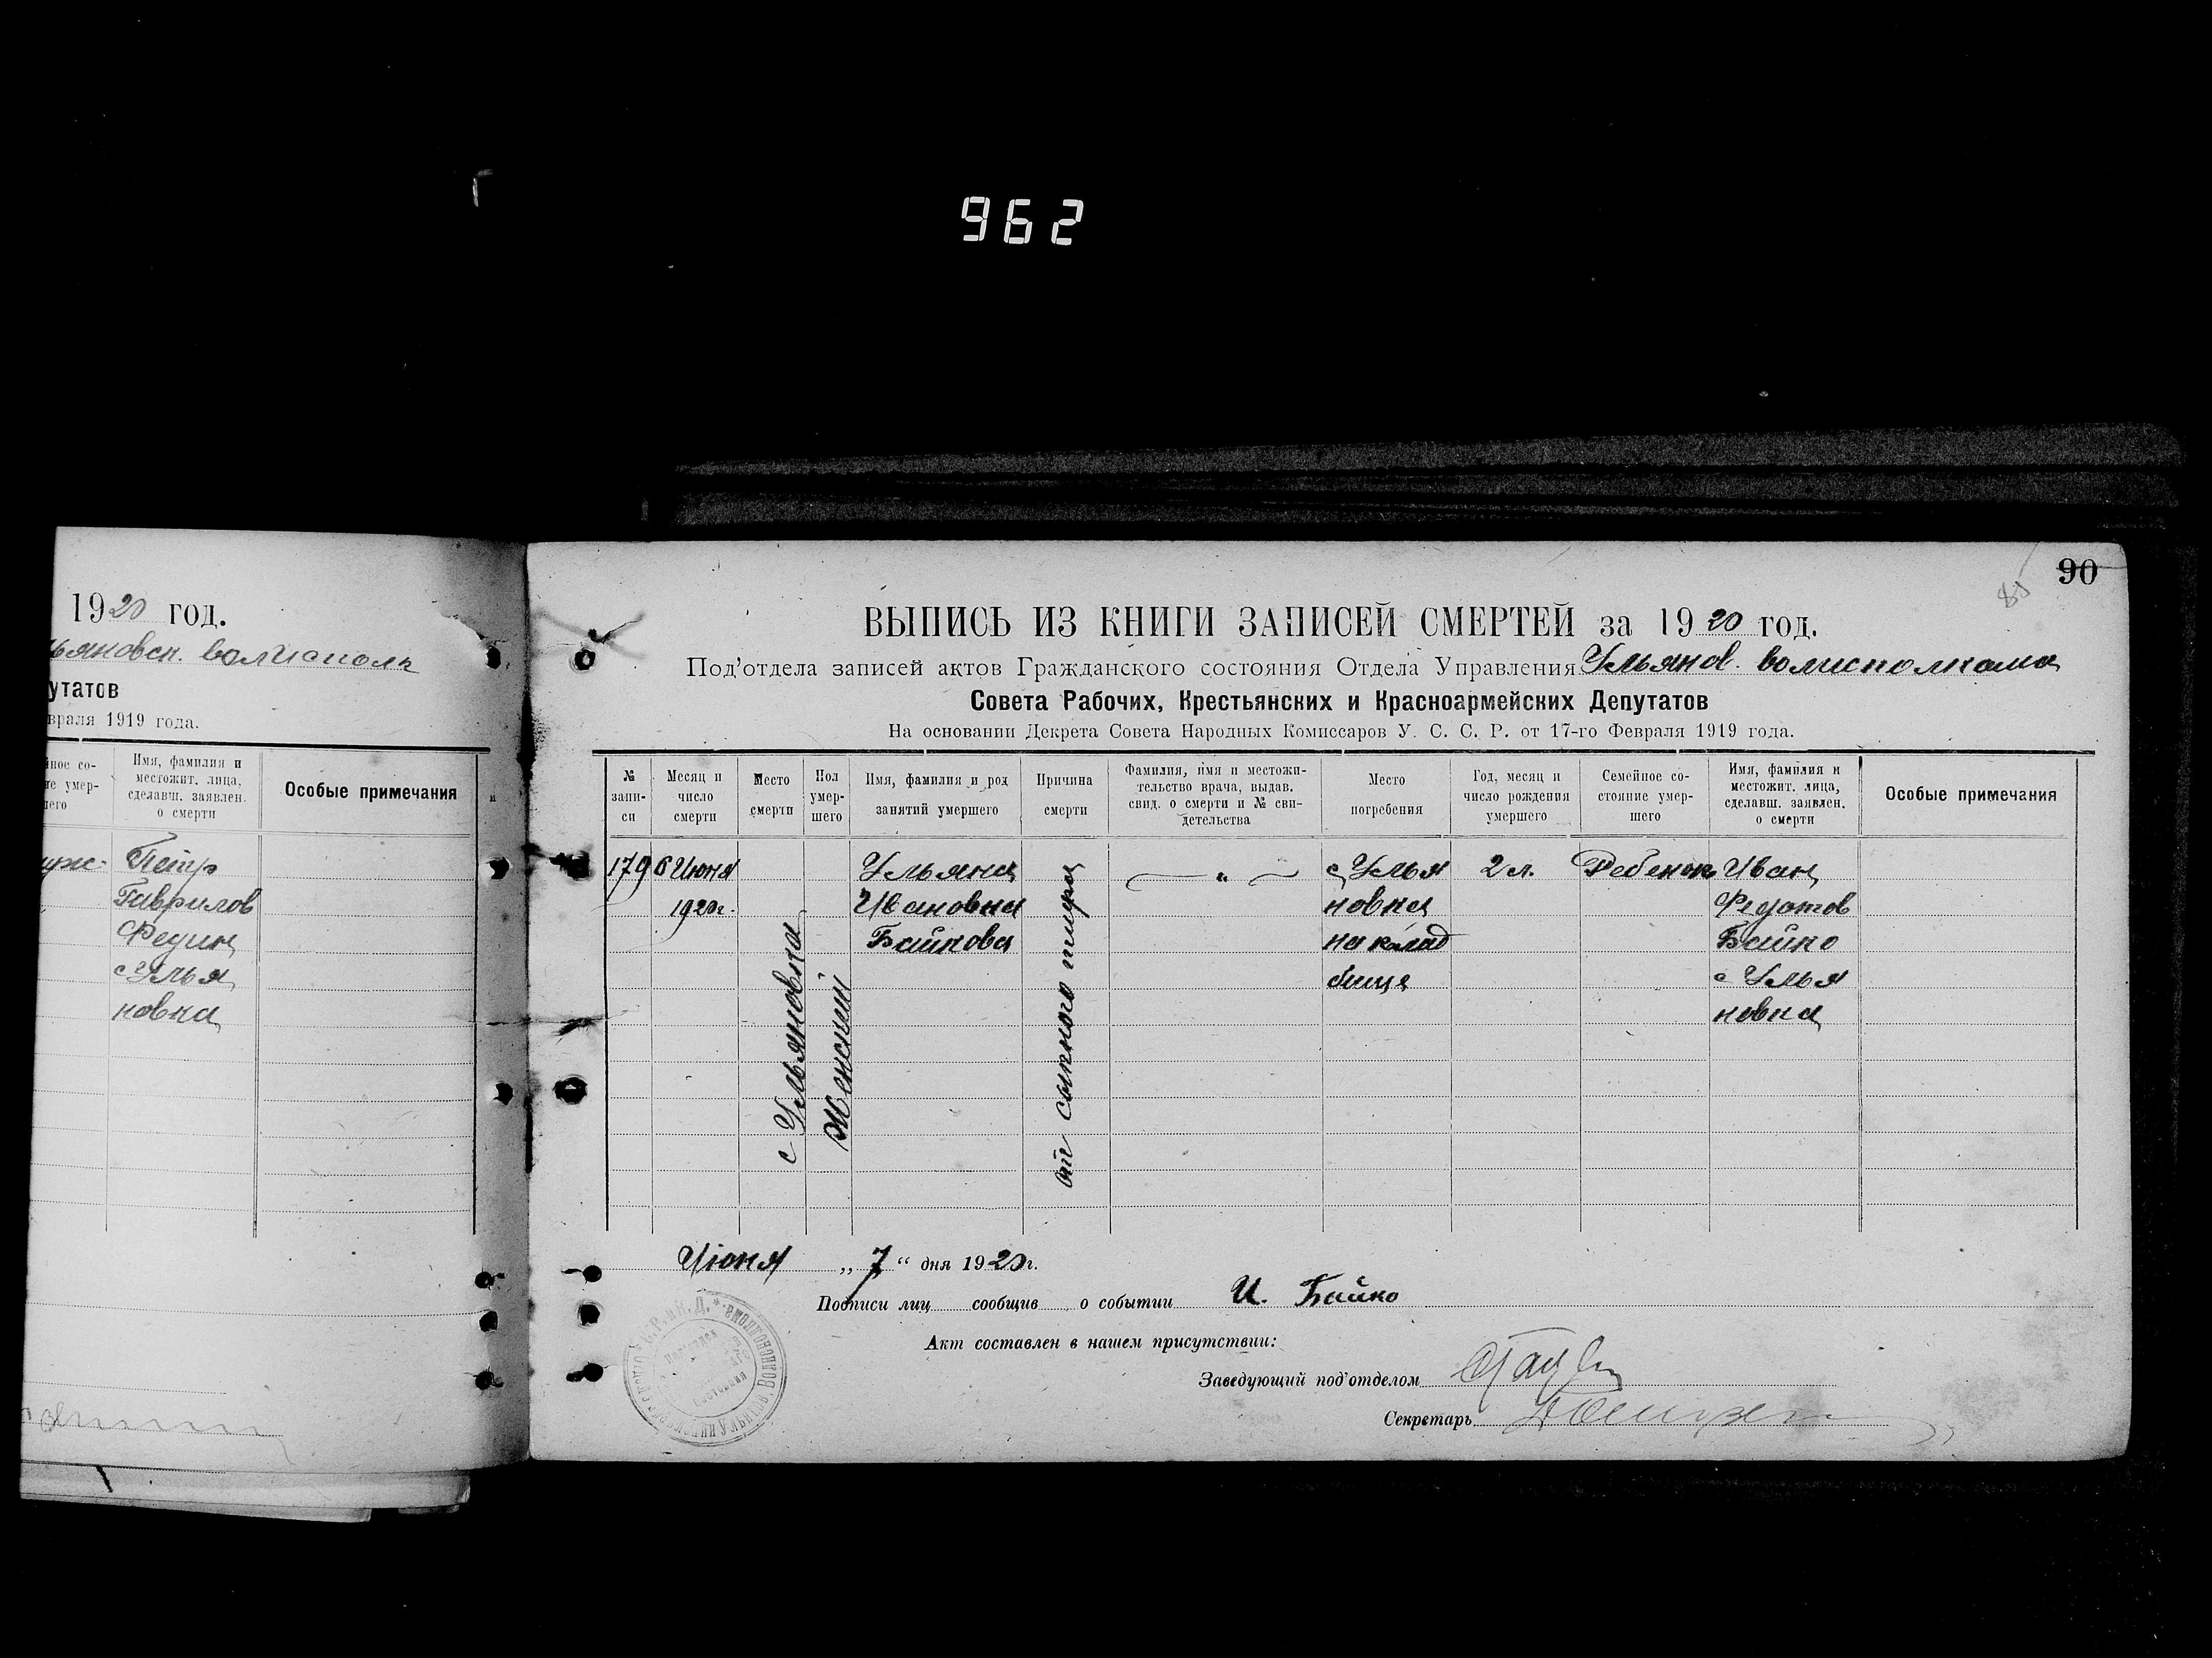 962
1920 год.
ьяновск. волисполк
утатов
враля 1919 года.
Имя, фамилия и
местожит. лица,
сделавш. заявлен.
о смерти
Особые примечания
Петр
Гаврилов
Федин
с Улья
новка
90
85
ВЫПИСЬ ИЗ КНИГИ ЗАПИСЕЙ СМЕРТЕЙ за 1920 год.
Под'отдела записей актов Гражданского состояния Отдела Управления Ульянов. волисполкома
Совета Рабочих, Крестьянских и Красноармейских Депутатов
На основании Декрета Совета Народных Комиссаров У. С. С. Р. от 17-го Февраля 1919 года.
№ запи-си
Месяц и число смерти
Место смерти
Пол умер-шего
Имя, фамилия и род занятий умершего
Причина смерти
Фамилия, имя и местожи-тельство врача, выдав. свид. о смерти и № сви-детельства
Место погребения
Год, месяц и число рождения умершего
Семейное со-стояние умер-шего
Имя, фамилия и местожит. лица, сделавш. заявлен. о смерти
Особые примечания
179
6 Июня
1920г.
с Ульяновка
Женский
Ульяна
Ивановна
Байкова
от сыпного тифа
— " —
с Улья
новка
на клад
бище
2 л.
Ребенок
Иван
Федотов
Байко
с Улья
новка
Июня „ 7 “ дня 1920г.
Подписи лиц сообщив о событии И. Байко
Акт составлен в нашем присутствии:
Заведующий под'отделом
Секретарь